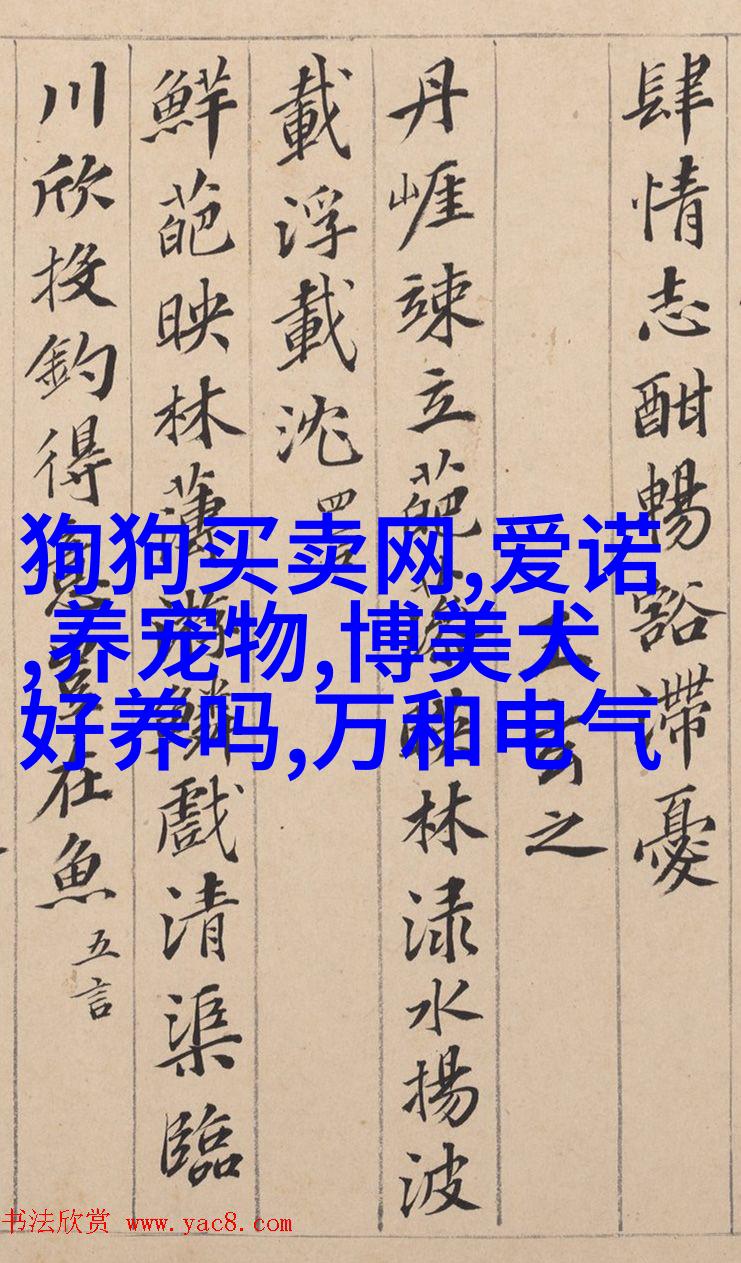 肆情志酣暢豁滯憂
王玄之
丹崕竦立葩林渌水揚波
載浮載沈 四言
鮮葩映林薄鱗戲清渠臨
川欣投釣得意在魚 五言
狗狗买卖网,爱诺
,养宠物,博美犬
好养吗,万和电气
书法欣赏 www.yac8.com